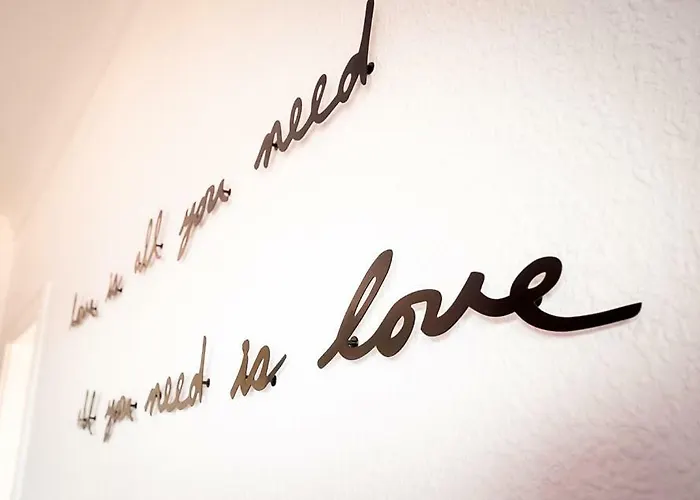 Love is all you need
all you need is love